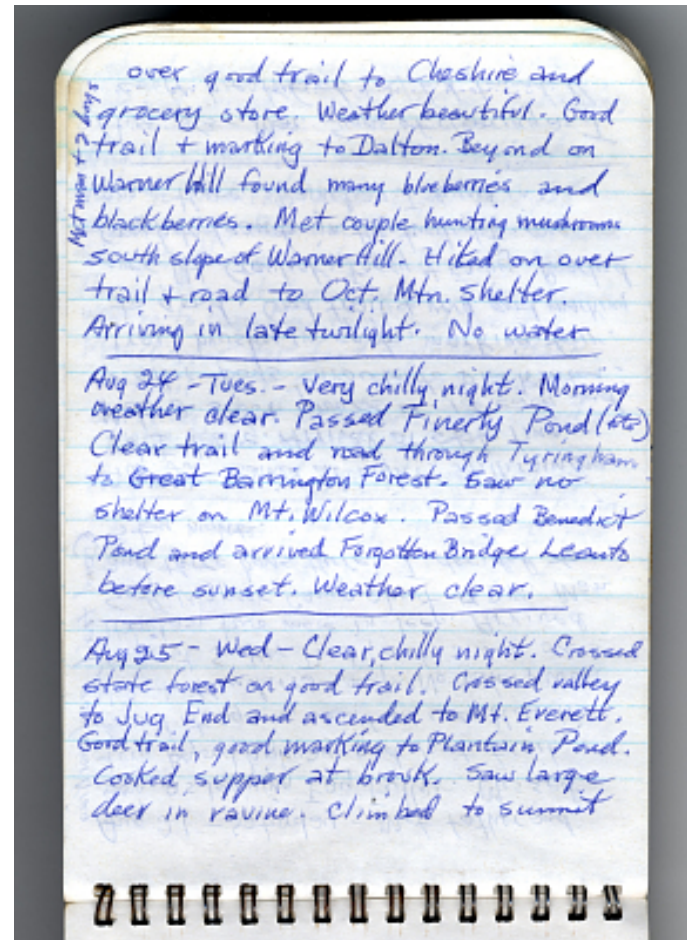 over good trail to Cheshire and
grocery store. Weather beautiful. Good
trail + marking to Dalton. Beyond on
Warner Hill found many blueberries and
blackberries. Met couple hunting mushrooms
south slope of Warner Hill. Hiked on over
trail + road to Oct. Mtn. shelter.
Arriving in late twilight. No water
Met man + 2 boys
Aug 24 - Tues. - Very chilly night. Morning
weather clear. Passed Finerty Pond
Clear trail and road through Tyringham
to Great Barrington Forest. Saw no
shelter on Mt. Wilcox. Passed Benedict
Pond and arrived Forgotten Bridge Leanto
before sunset. Weather clear.
Aug 25 - Wed - Clear, chilly night. Crossed
state forest on good trail. Crossed valley
to Jug End and ascended to Mt. Everett.
Good trail, good marking to Plantain Pond.
Cooked supper at brook. Saw large
deer in ravine. Climbed to summit